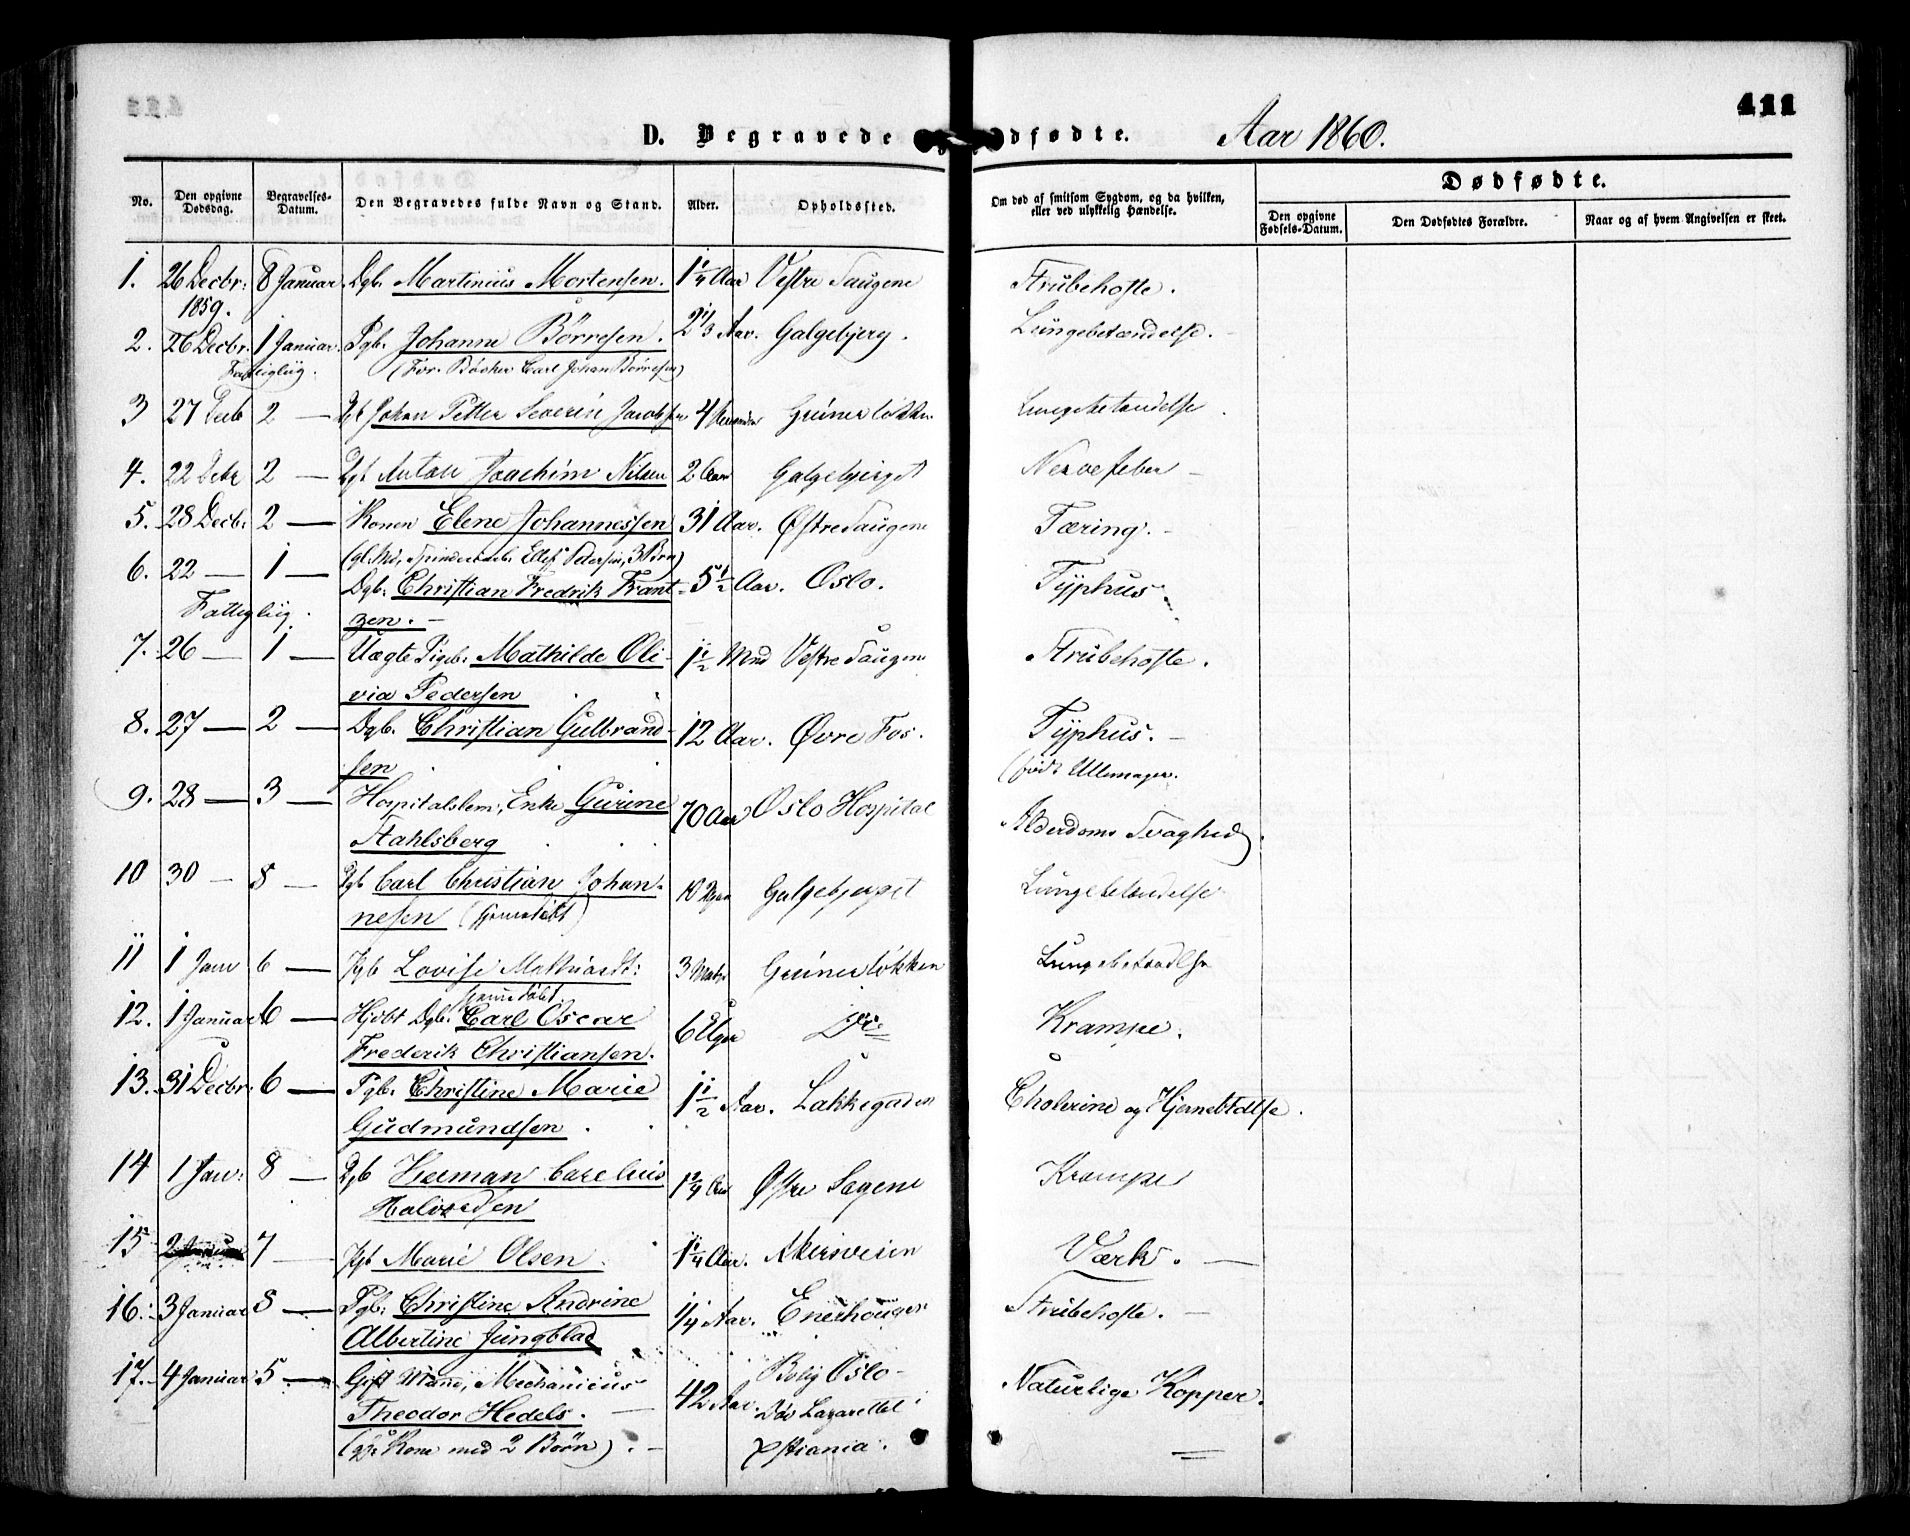 411
D. Begravede og Dødfødte. Aar 1860.
No. Den opgivne Dødsdag. Begravelses-Datum. Den Begravedes fulde Navn og Stand. Alder. Opholdssted. Om død af smitsom Sygdom, og da hvilken, eller ved ulykkelig Hændelse. Dødfødte.
Den opgivne Fødsels-Datum. Den Dødfødtes Forældre. Naar og af hvem Angivelsen er skeet.
1. 26 Decbr: 8 Januar Dgb. Martinius Mortensen. 1 1/4 Aar Vestre Saugene Strubehoste.
1859.
2. 26 Decbr. 1 Januar. Pgb. Johanne Børresen. 2 1/3 Aar. Galgebjerg. Lungebetændelse.
Fattigliig. (For. Bødker Carl Johan Børresen)
3 27 Decb 2 — Dgb Johan Petter Severin Jacobsen 4 Grünerløkken Lungebetændelse
4. 22 Decbr 2 — Dgb Anton Joachim Nilsen 2 Aar Galgebjerget Nervefeber —
5. 28 Decb: 2 — Konen Elene Johannessen 31 Aar. Østre Saugene Tæring. —
(gl. Md, Spinderiarb. Ellef Pedersen, 3 Børn)
6. 22 — 1 — Dgb. Christian Fredrik Frant- 5 1/2 Aar. Oslo. Typhus.
Fattigliig. zen. —
7. 26 — 1 — Uægte Pigeb. Mathilde Oli- 1 1/2 Mnd Vestre Saugene Strubehoste.
via Pedersen
8. 27 — 2 — Dgb. Christian Gulbrand- 12 Aar. Øvre Fos. Typhus. —
sen (født Ullensager.
9. 28 — 3 — Hospitalslem, Enke Gurine 70 Aar Oslo Hospital Alderdoms Svaghed.
Stahlsberg
10 30 — 8 — Dgb Carl Christian Johan- 10 Galgebjerget Lungebetændelse
nesen (hjemmedøbt)
11 1 Janu 6 — Pgb Lovise 3 Grünerløkken Lungebetændelse
12. 1 Januar 6 — Hjdbt Dgb. Carl Oscar 6 Uger Do Krampe.
Frederik Christiansen.
13. 31 Decbr: 6 — Pgb. Christine Marie 1 1/2 Aar. Lakkegaden Cholerine og Hjernebtdlse.
Gudmundsen
14 1 Jan: 8 — Dgb Herman Carelius Østre Sagene Krampe
Halvorsen
15 2 Januar 7 — Pgb Marie Olsen 1 1/4 Aar. Akersveien Værk. —
16. 3 Januar 8 — Pgb. Christine Andrine 1/4 Aar. Enerhougen Strubehoste. —
Albertine Jungblad
17. 4 Januar 5 — Gift Mand, Mechanicus 42 Aar. Bolig Oslo — Naturlige Kopper.
Theodor Hedels. — Død Lazarettet i
(gl. Kone med 2 Børn). — Xstiania.